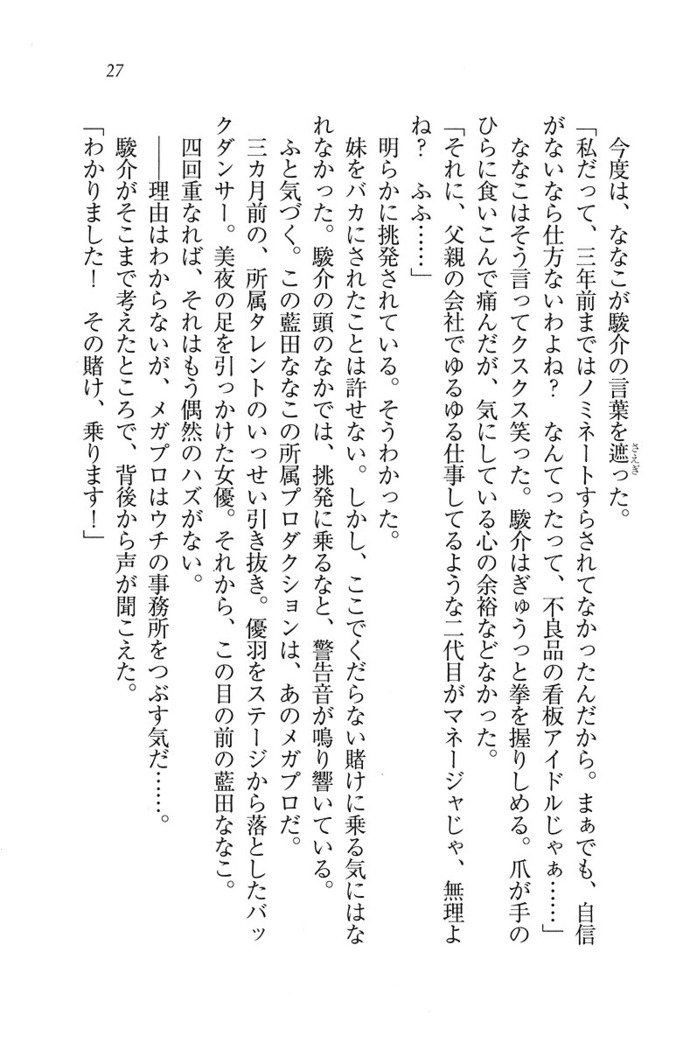 27
今度は、ななこが駿介の言葉を遮った。
さえぎ
「私だって、三年前まではノミネートすらされてなかったんだから。まぁでも、自信
がないなら仕方ないわよね？　なんてったって、不良品の看板アイドルじゃぁ……」
ななこはそう言ってクスクス笑った。駿介はぎゅうっと拳を握りしめる。爪が手の
ひらに食いこんで痛んだが、気にしている心の余裕などなかった。
「それに、父親の会社でゆるゆる仕事してるような二代目がマネージャじゃ、無理よ
ね？　ふふ……」
明らかに挑発されている。そうわかった。
妹をバカにされたことは許せない。しかし、ここでくだらない賭けに乗る気にはな
れなかった。駿介の頭のなかでは、挑発に乗るなと、警告音が鳴り響いている。
ふと気づく。この藍田ななこの所属プロダクションは、あのメガプロだ。
三カ月前の、所属タレントのいっせい引き抜き。優羽をステージから落としたバッ
クダンサー。美夜の足を引っかけた女優。それから、この目の前の藍田ななこ。
四回重なれば、それはもう偶然のハズがない。
――理由はわからないが、メガプロはウチの事務所をつぶす気だ……。
駿介がそこまで考えたところで、背後から声が聞こえた。
「わかりました！　その賭け、乗ります！」